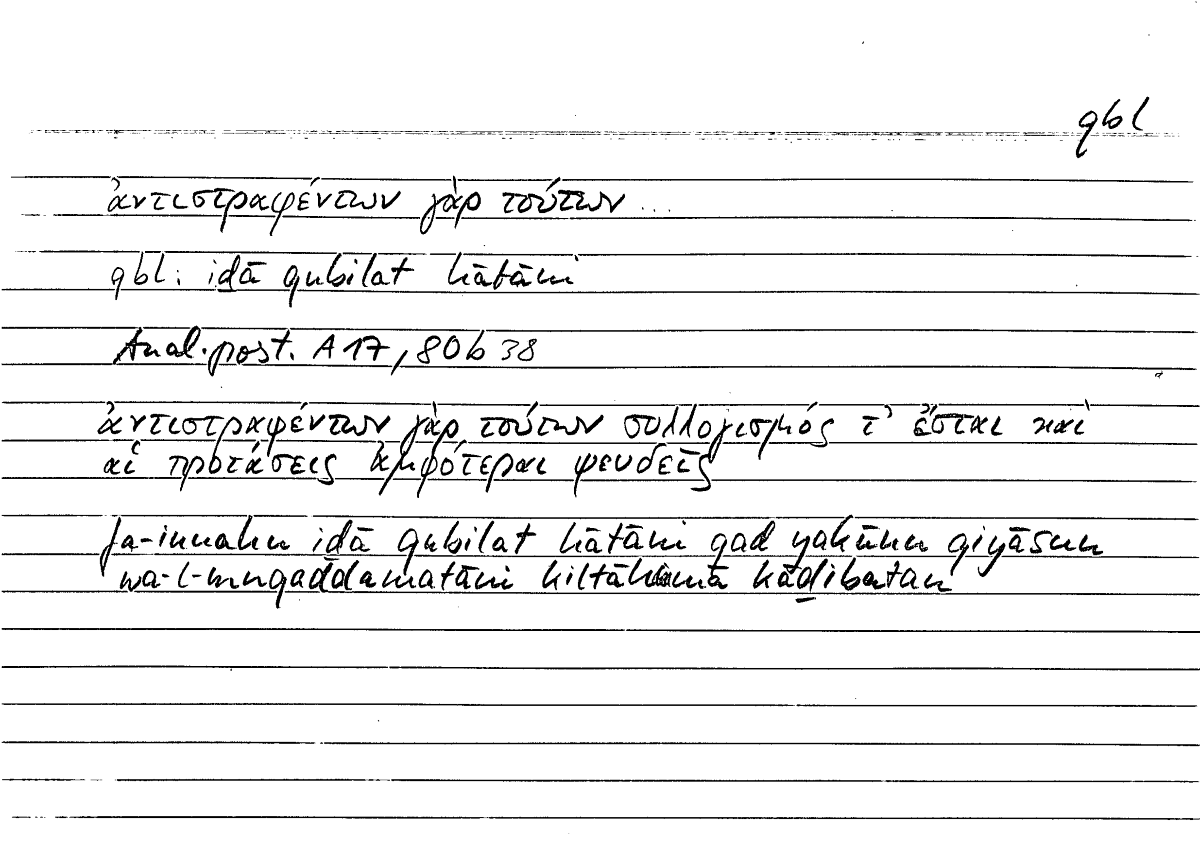 qbl
ἀντιστραφέντων γὰρ τούτων ...
qbl: iḏā qubilat hātāni
Anal. post. A 17, 80 b 38
ἀντιστραφέντων γὰρ τούτων συλλογισμός τ᾽ ἔσται καὶ
αἱ προτάσεις ἀμφότεραι ψευδεῖς
fa-innahu iḏā qubilat hātāni qad yakūnu qiyāsun
wa-l-muqaddamatāni kiltāhumā kāḏibatan